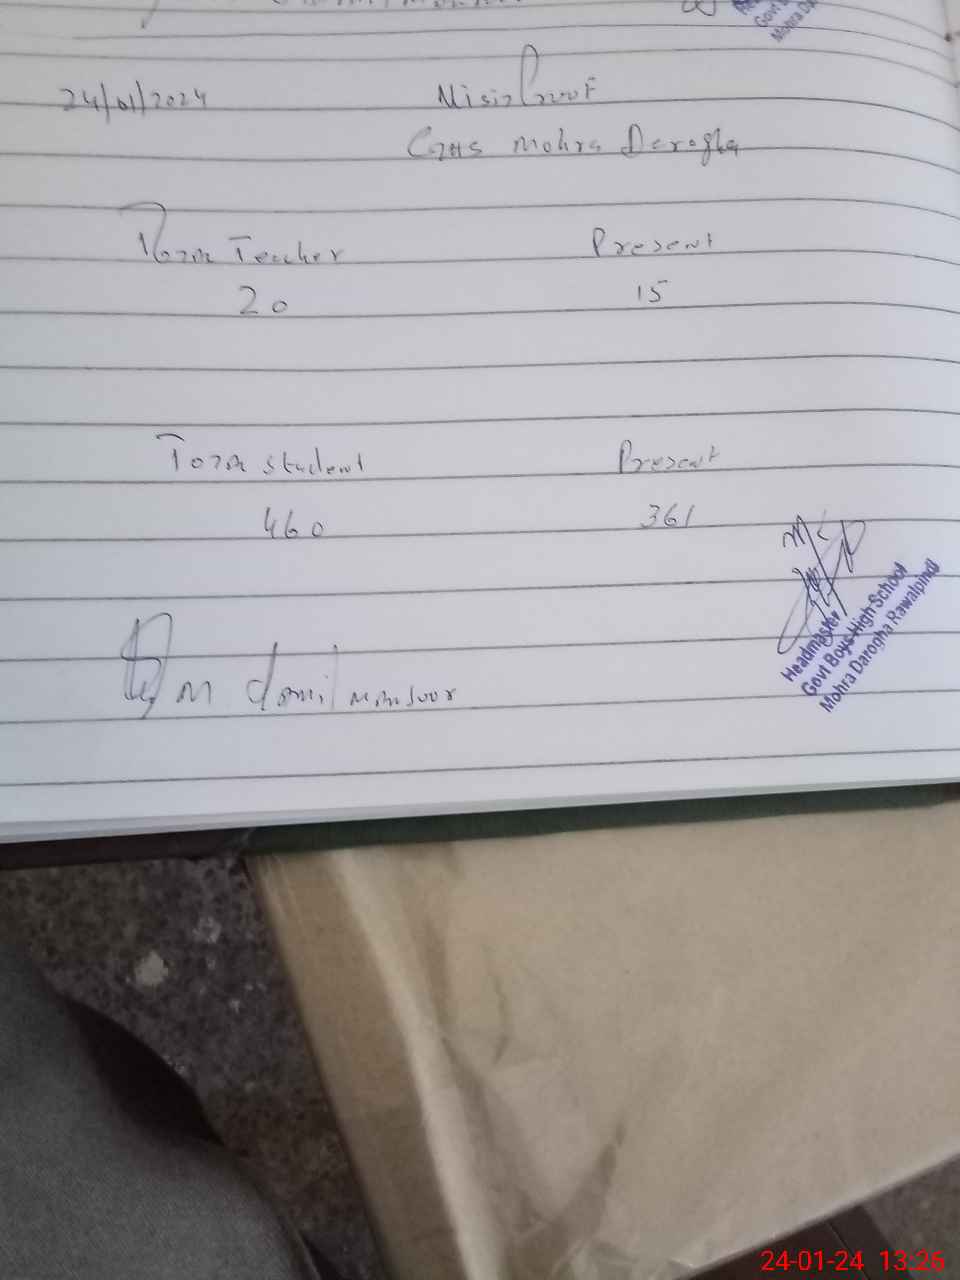 24/01/2024 Visit Proof
GHS Mohra Darogha
Total Teacher Present
20 15
Total student Present
460 361
Headmaster
Govt Boys High School
Mohra Darogha Rawalpindi
M
24-01-24 13:26